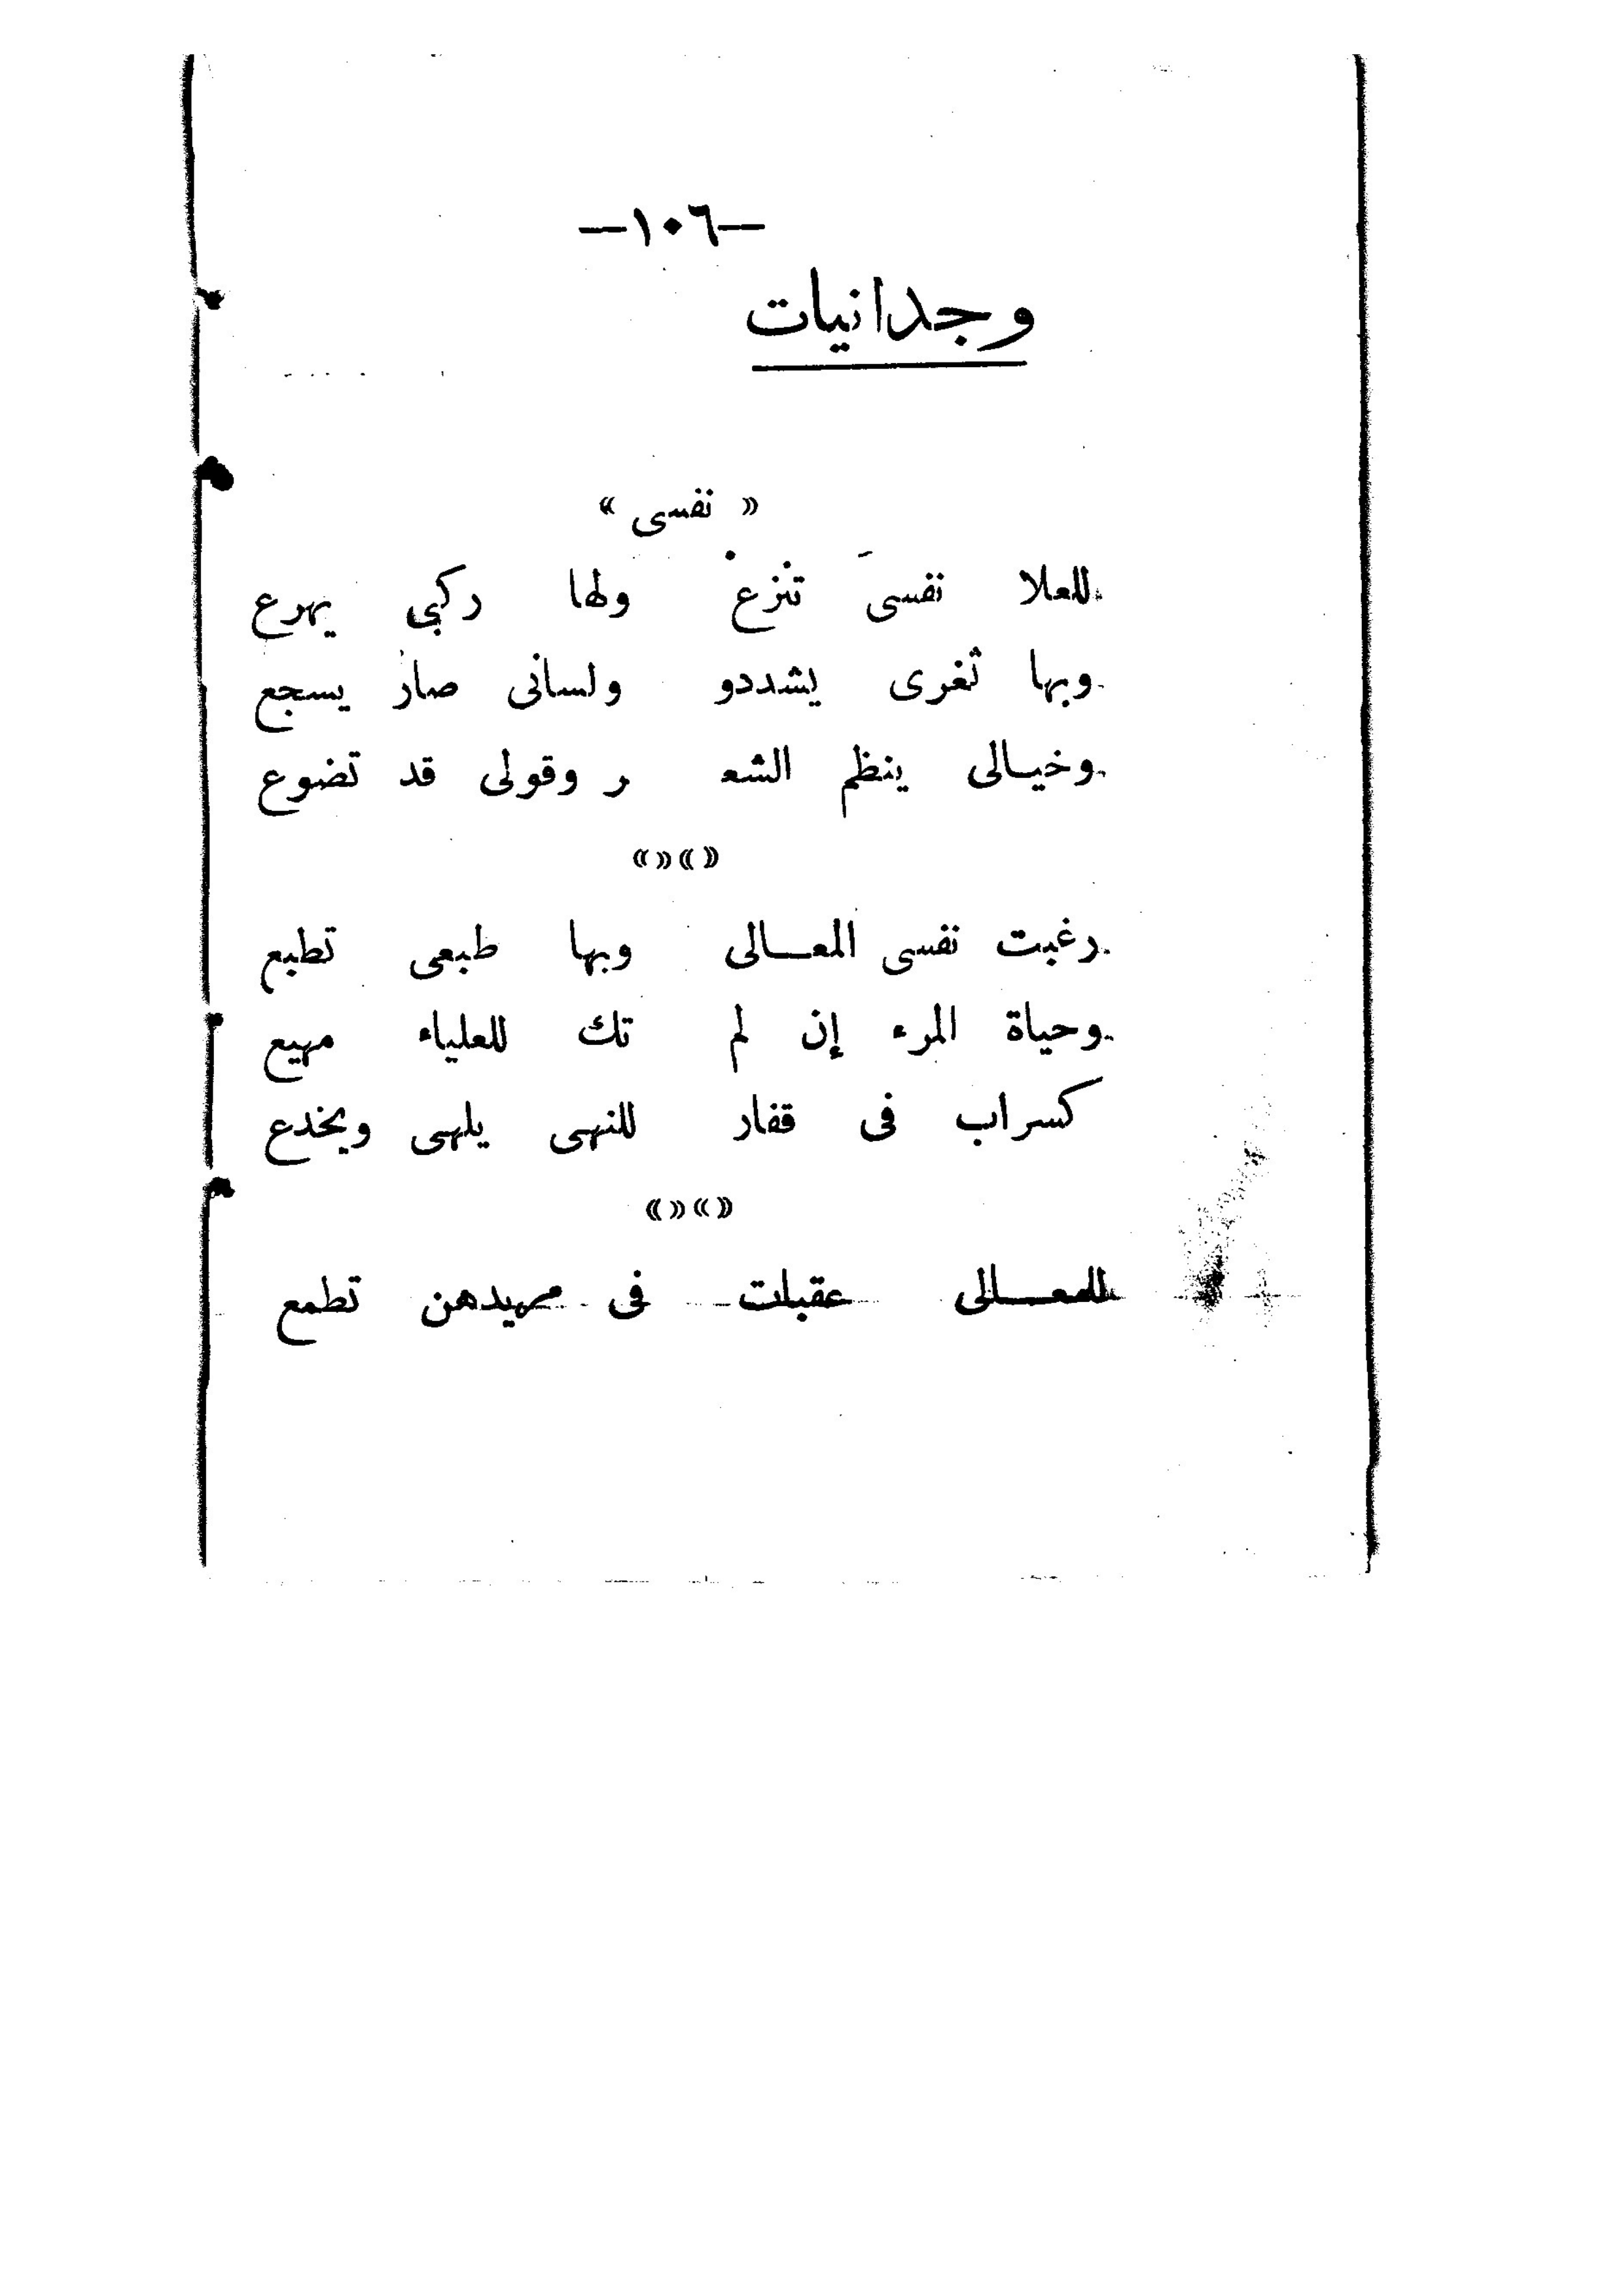 —١٠٦—
وجدانيات
« نفسى »
للعلا نفسى تنزع ولها ركبي يهرع
وبها ثغرى يشددو ولسانى صار يسجع
وخيالى ينظم الشعـ ـر وقولى قد تضوع
«»«»
رغبت نفسى المعالى وبها طبعى تطبع
وحياة المرء إن لم تك للعلياء مهيع
كسراب فى قفار للنهى يلهى ويخدع
«»«»
للمعالى عقبات فى مريدهن تطمع